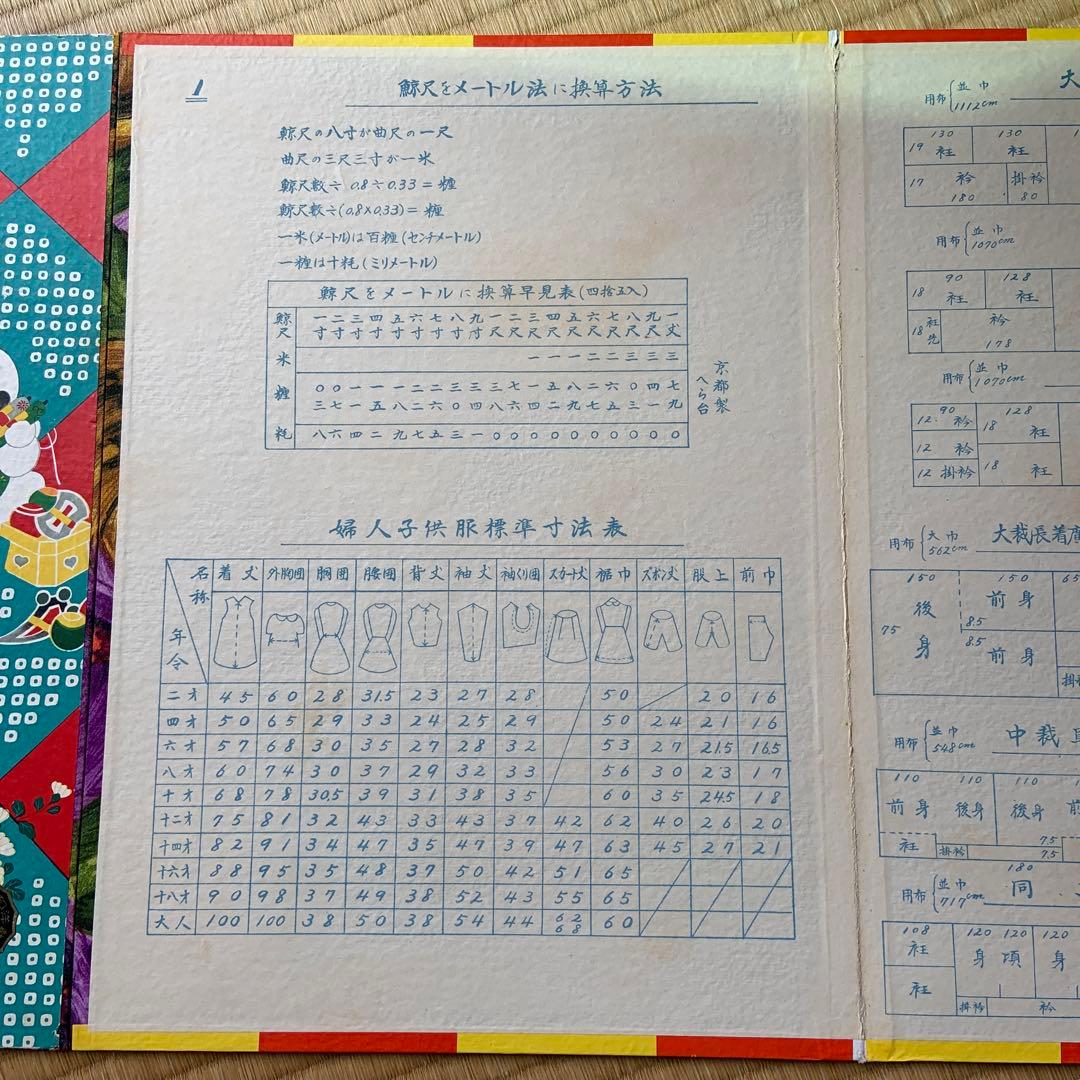 1
鯨尺をメートル法に換算方法
鯨尺の八寸が曲尺の一尺
曲尺の三尺三寸が一米
鯨尺数÷0.8÷0.33=糎
鯨尺数÷(0.8×0.33)=糎
一米(メートル)は百糎(センチメートル)
一糎は十粍(ミリメートル)
鯨尺をメートルに換算早見表(四捨五入)
鯨尺 一寸 二寸 三寸 四寸 五寸 六寸 七寸 八寸 九寸 一尺 二尺 三尺 四尺 五尺 六尺 七尺 八尺 九尺 一丈
米 一 一 一 二 二 三 三 三
糎 ○ ○ 一 一 一 二 二 三 三 三 七 一 五 八 二 六 ○ 四 七
三 七 一 五 八 二 六 ○ 四 八 六 四 二 九 七 五 三 一 九
粍 八 六 四 二 九 七 五 三 一 ○ ○ ○ ○ ○ ○ ○ ○ ○ ○
京都製
へら台
婦人子供服標準寸法表
名称 年令 着丈 外胸囲 胴囲 腰囲 背丈 袖丈 袖ぐり囲 スカート丈 裾巾 ズボン丈 股上 前巾
二才 45 60 28 31.5 23 27 28 50 20 16
四才 50 65 29 33 24 25 29 50 24 21 16
六才 57 68 30 35 27 28 32 53 27 21.5 16.5
八才 60 74 30 37 29 32 33 56 30 23 17
十才 68 78 30.5 39 31 38 35 60 35 24.5 18
十二才 75 81 32 43 33 43 37 42 62 40 26 20
十四才 82 91 34 47 35 47 39 47 63 45 27 21
十六才 88 95 35 48 37 50 42 51 65
十八才 90 98 37 49 38 52 43 55 65
大人 100 100 38 50 38 54 44 62 68 60
用布 並巾 1112cm 大
130 130
19 衽 衽
17 衿 掛衿
180 80
用布 並巾 1070cm
90 128
18 衽 衽
18 衽先 衿
178
用布 並巾 1070cm
90 128
12 衿 18 衽
12 衿
12 掛衿 18 衽
用布 大巾 562cm 大裁長着
150 150 65
後身 前身
75 8.5
8.5 前身
掛衿
用布 並巾 548cm 中裁
110 110 110
前身 後身 後身
衽 掛衿 75
7.5
180
用布 並巾 717cm 同
108 120 120 120
衽 身 項 身
衽
掛衿 衿